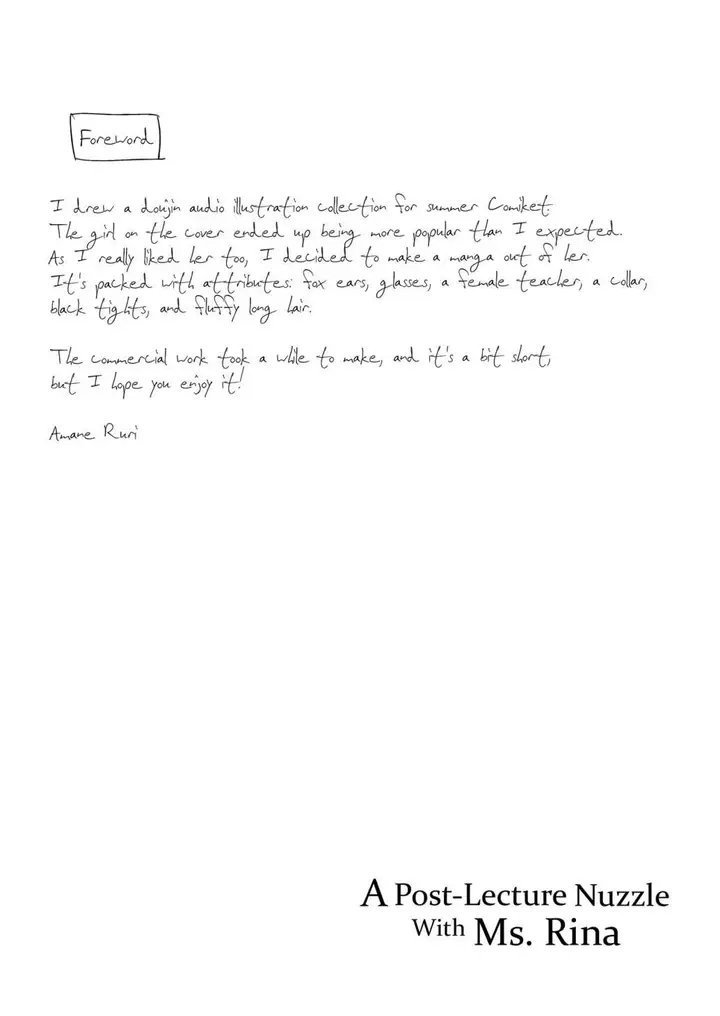 Foreword
I drew a doujin audio illustration collection for summer Comiket.
The girl on the cover ended up being more popular than I expected.
As I really liked her too, I decided to make a manga out of her.
It's packed with attributes: fox ears, glasses, a female teacher, a collar,
black tights, and fluffy long hair.
The commercial work took a while to make, and it's a bit short,
but I hope you enjoy it!
Amane Ruri
A Post-Lecture Nuzzle
With Ms. Rina